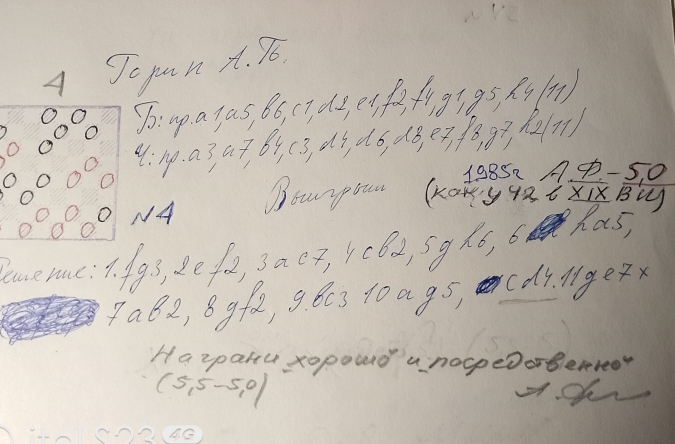 A
Горин А.Б.
Б: пр. а1, а5, в6, с1, d2, e1, f2, f4, g1, g5, h4 (11)
Ч: пр. а3, а7, в4, с3, d4, d6, d8, e7, f8, g7, h2 (11)
1985г А.Ф. - 5,0
№4 Выигрыш (как у 42 в XIX ВЦ)
Решение: 1. fg3, 2 ef2, 3 ac7, 4 cb2, 5 gh6, 6 ha5,
7 ab2, 8 gf2, 9. bc3 10 ag5, cd4. 11 ge7 x
На грани „хорошо" и „посредственно"
(5,5-5,0)
4G